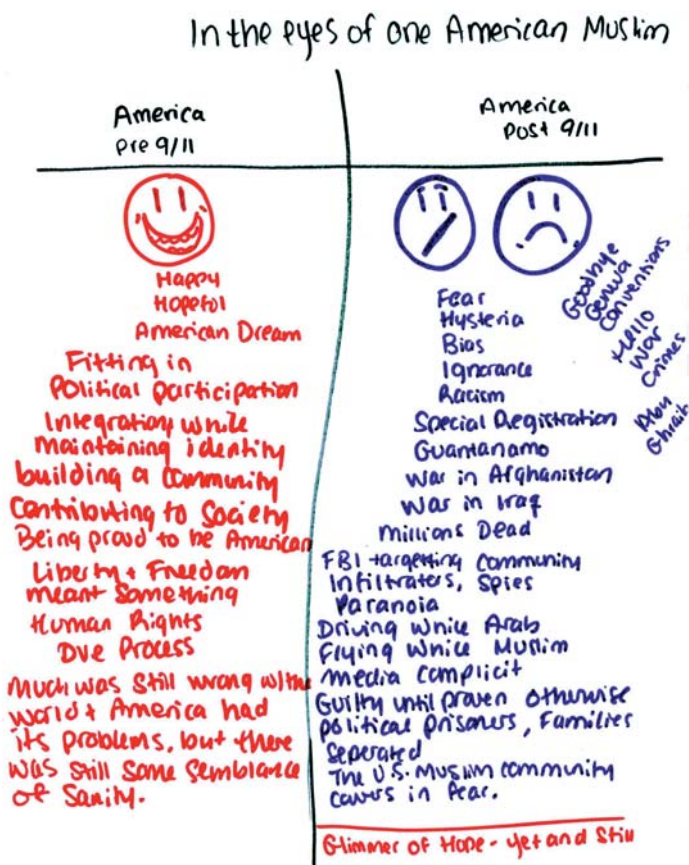 In the eyes of one American Muslim
America
pre 9/11
Happy
Hopeful
American Dream
Fitting in
Political participation
Integration while
maintaining identity
building a community
Contributing to Society
Being proud to be American
Liberty + Freedom
meant something
Human Rights
Due Process
Much was still wrong w/the
world + America had
its problems, but there
was still some semblance
of Sanity.
America
post 9/11
Fear
Hysteria
Bias
Ignorance
Racism
Special Registration
Guantanamo
War in Afghanistan
War in Iraq
Millions Dead
FBI targetting community
Infiltraters, Spies
Paranoia
Driving While Arab
Flying While Muslim
media complicit
Guilty until proven otherwise
political prisoners, Families
Seperated
The U.S. Muslim community
cowers in fear.
Goodbye
Geneva
Conventions
Hello
War
Crimes
Abu
Ghraib
Glimmer of Hope - yet and Still